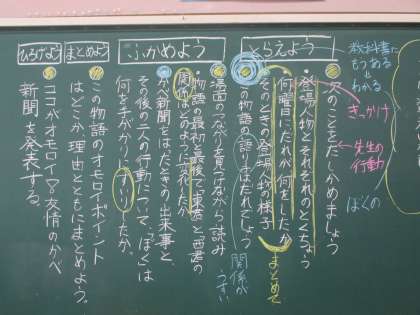 教科書に
もつある
↓
わかる
きっかけ
先生の
行動
ぼくの
とらえよう
次のことをたしかめましょう
・登場人物とそれぞれのとくちょう
・何曜日にだれが何をしたか
・そのときの登場人物の様子
まとめて
この物語の語りはだれでしょう
関係が
うすい
ふかめよう
場面のつながりを見つけながら読み
・物語の最初と最後で東君と西君の
関係はどのように変わったか
・かべ新聞をはったときの出来事と、
その後の二人の行動について、「ぼくは
何を手がかりにすいりしたか。
まとめよう
この物語のオモロイポイント
はどこか理由とともにまとめよう。
ひろげよう
ココがオモロイ!友情のかべ
新聞を発表する。